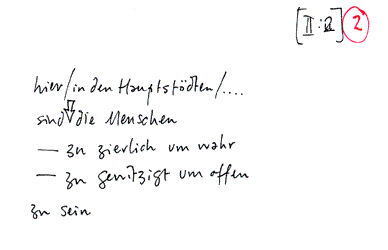 [II:2] 2
hier/in den Hauptstädten/....
sind die Menschen
— zu zierlich um wahr
— zu gewitzigt um offen
zu sein